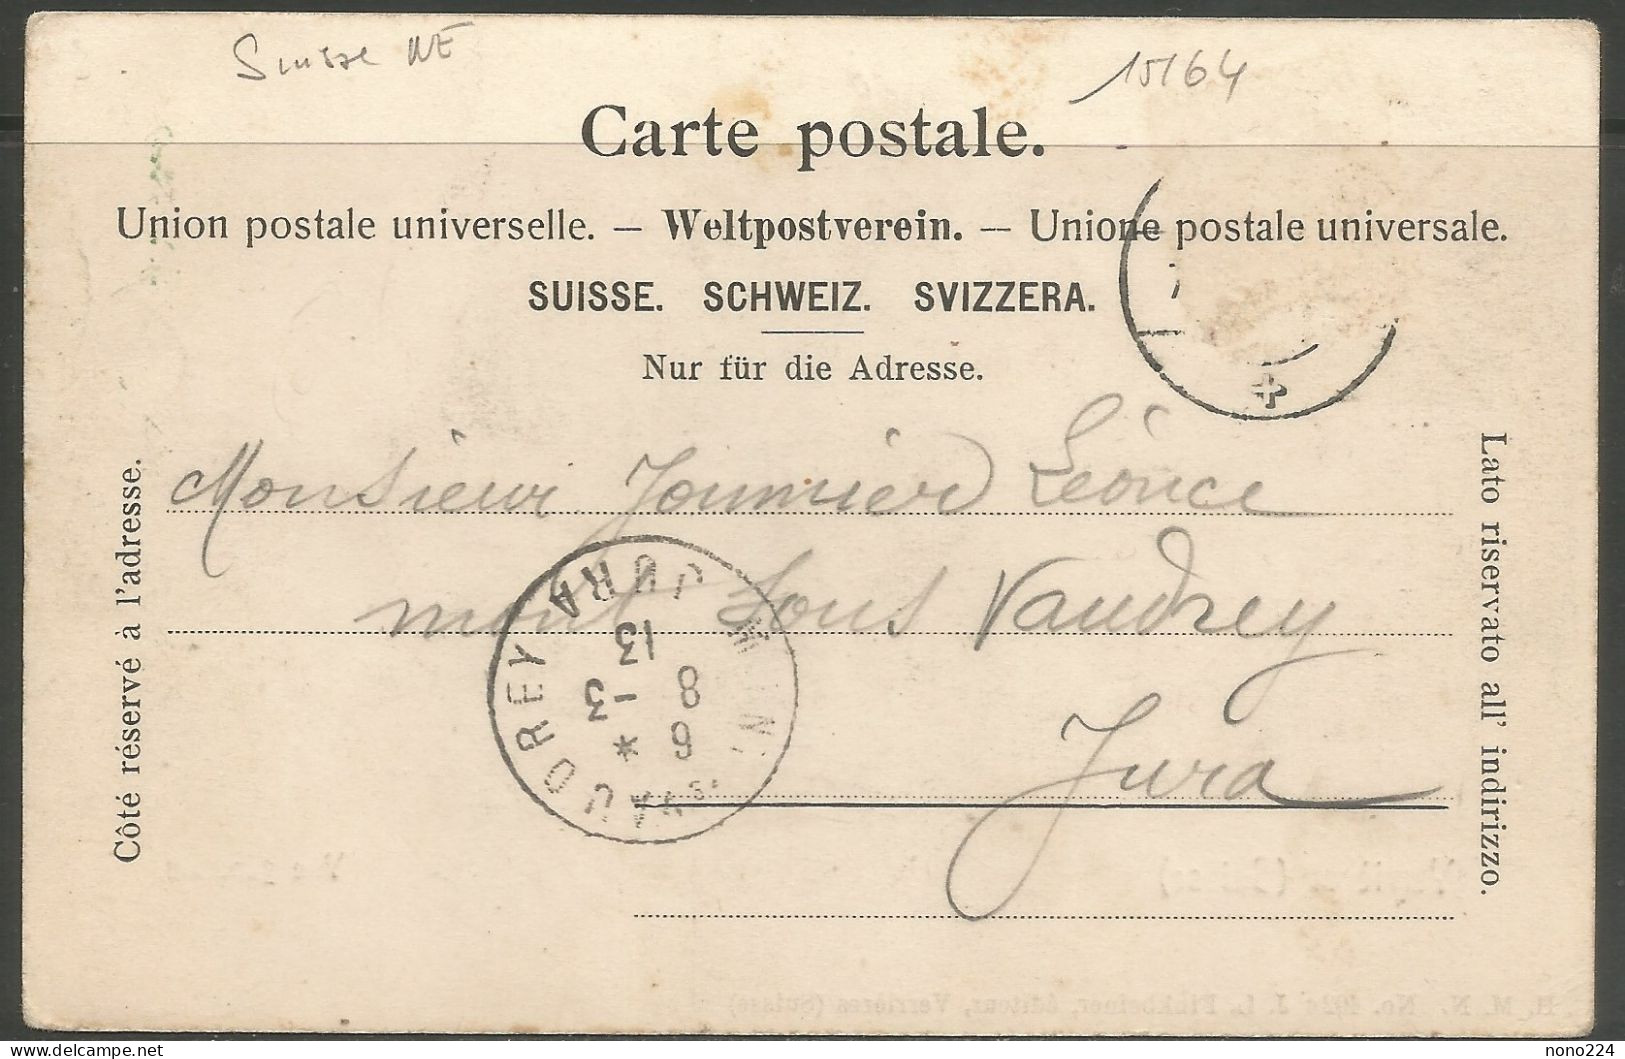 Suisse NE
15164
Carte postale.
Union postale universelle. — Weltpostverein. — Unione postale universale.
SUISSE. SCHWEIZ. SVIZZERA.
Nur für die Adresse.
Côté réservé à l'adresse.
Lato riservato all' indirizzo.
Monsieur Jounnier Léonce
mont sous Vaudrey
Jura
VAUDREY JURA
13
8 - 3
6 *
H. M. N. No. 492a J. L. Finkbeiner, éditeur, Verrières (Suisse)
nono224